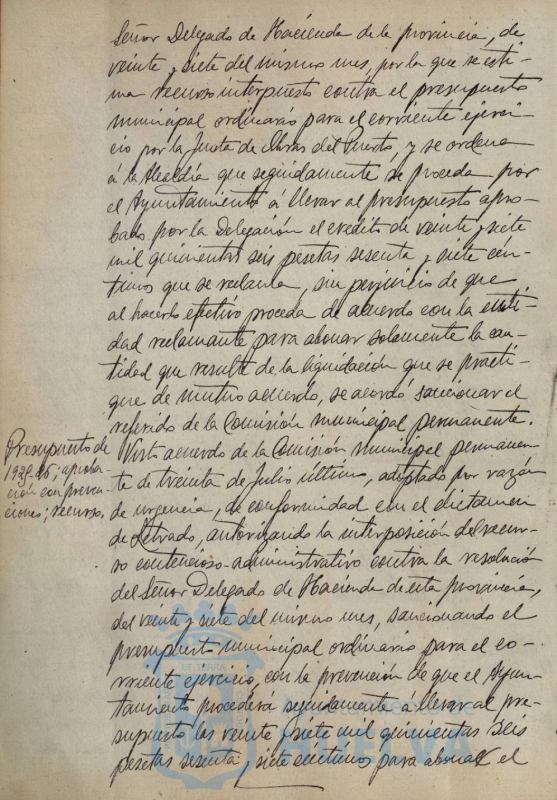 Señor Delegado de Hacienda de la provincia, de
veinte y siete del mismo mes, por la que se esti-
ma recurso interpuesto contra el presupuesto
municipal ordinario para el corriente ejerci-
cio por la Junta de Obras del Puerto, y se ordena
á la Alcaldía que seguidamente se proceda por
el Ayuntamiento á llevar al presupuesto apro-
bado por la Delegación el crédito de veinte y siete
mil quinientas seis pesetas sesenta y siete cén-
timos que se reclama, sin perjuicio de que
al hacerlo efectivo proceda de acuerdo con la enti-
dad reclamante para abonar solamente la can-
tidad que resulte de la liquidación que se practi-
que de mutuo acuerdo, se acordó sancionar el
referido de la Comisión municipal permanente.
Presupuesto de
192 -25; aproba-
ción con preven-
ciones; recurso.
Visto acuerdo de la Comisión municipal permanen-
te de treinta de Julio último, adoptado por razón
de urgencia, de conformidad con el dictamen
de Letrado, autorizando la interposición del recur-
so contencioso-administrativo contra la resolución
del Señor Delegado de Hacienda de esta provincia,
del veinte y siete del mismo mes, sancionando el
presupuesto municipal ordinario para el co-
rriente ejercicio, con la prevención de que el Ayun-
tamiento procederá seguidamente á llevar al pre-
supuesto las veinte y siete mil quinientas seis
pesetas sesenta y siete céntimos para abonar el
Ayuntamiento de
HUELVA